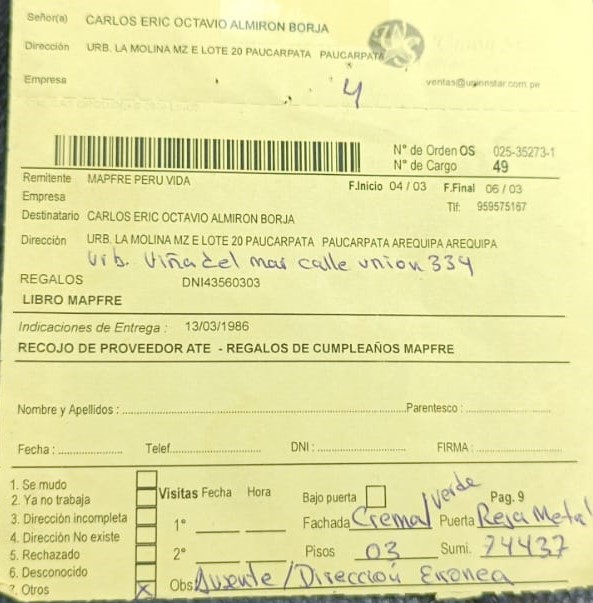 Señor(a) CARLOS ERIC OCTAVIO ALMIRON BORJA
Dirección URB. LA MOLINA MZ E LOTE 20 PAUCARPATA PAUCARPATA
Empresa ventas@unionstar.com.pe
4
N° de Orden OS 025-35273-1
N° de Cargo 49
Remitente MAPFRE PERU VIDA F.Inicio 04 / 03 F.Final 06 / 03
Empresa Tlf: 959575167
Destinatario CARLOS ERIC OCTAVIO ALMIRON BORJA
Dirección URB. LA MOLINA MZ E LOTE 20 PAUCARPATA PAUCARPATA AREQUIPA AREQUIPA
Urb. Viña del mar calle union 334
REGALOS DNI43560303
LIBRO MAPFRE
Indicaciones de Entrega : 13/03/1986
RECOJO DE PROVEEDOR ATE - REGALOS DE CUMPLEAÑOS MAPFRE
Nombre y Apellidos : Parentesco :
Fecha : Telef. DNI : FIRMA :
1. Se mudo
2. Ya no trabaja
3. Dirección incompleta
4. Dirección No existe
5. Rechazado
6. Desconocido
7. Otros X
Visitas Fecha Hora
1°
2°
Bajo puerta Pag. 9
Fachada Crema/verde Puerta Reja Metal
Pisos 03 Sumi. 74437
Obs Ausente / Dirección Erronea